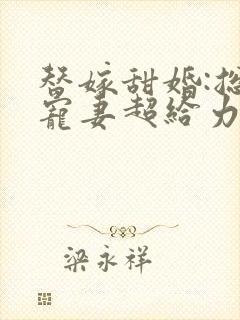 替嫁甜婚:总
宠妻超给力
梁永祥